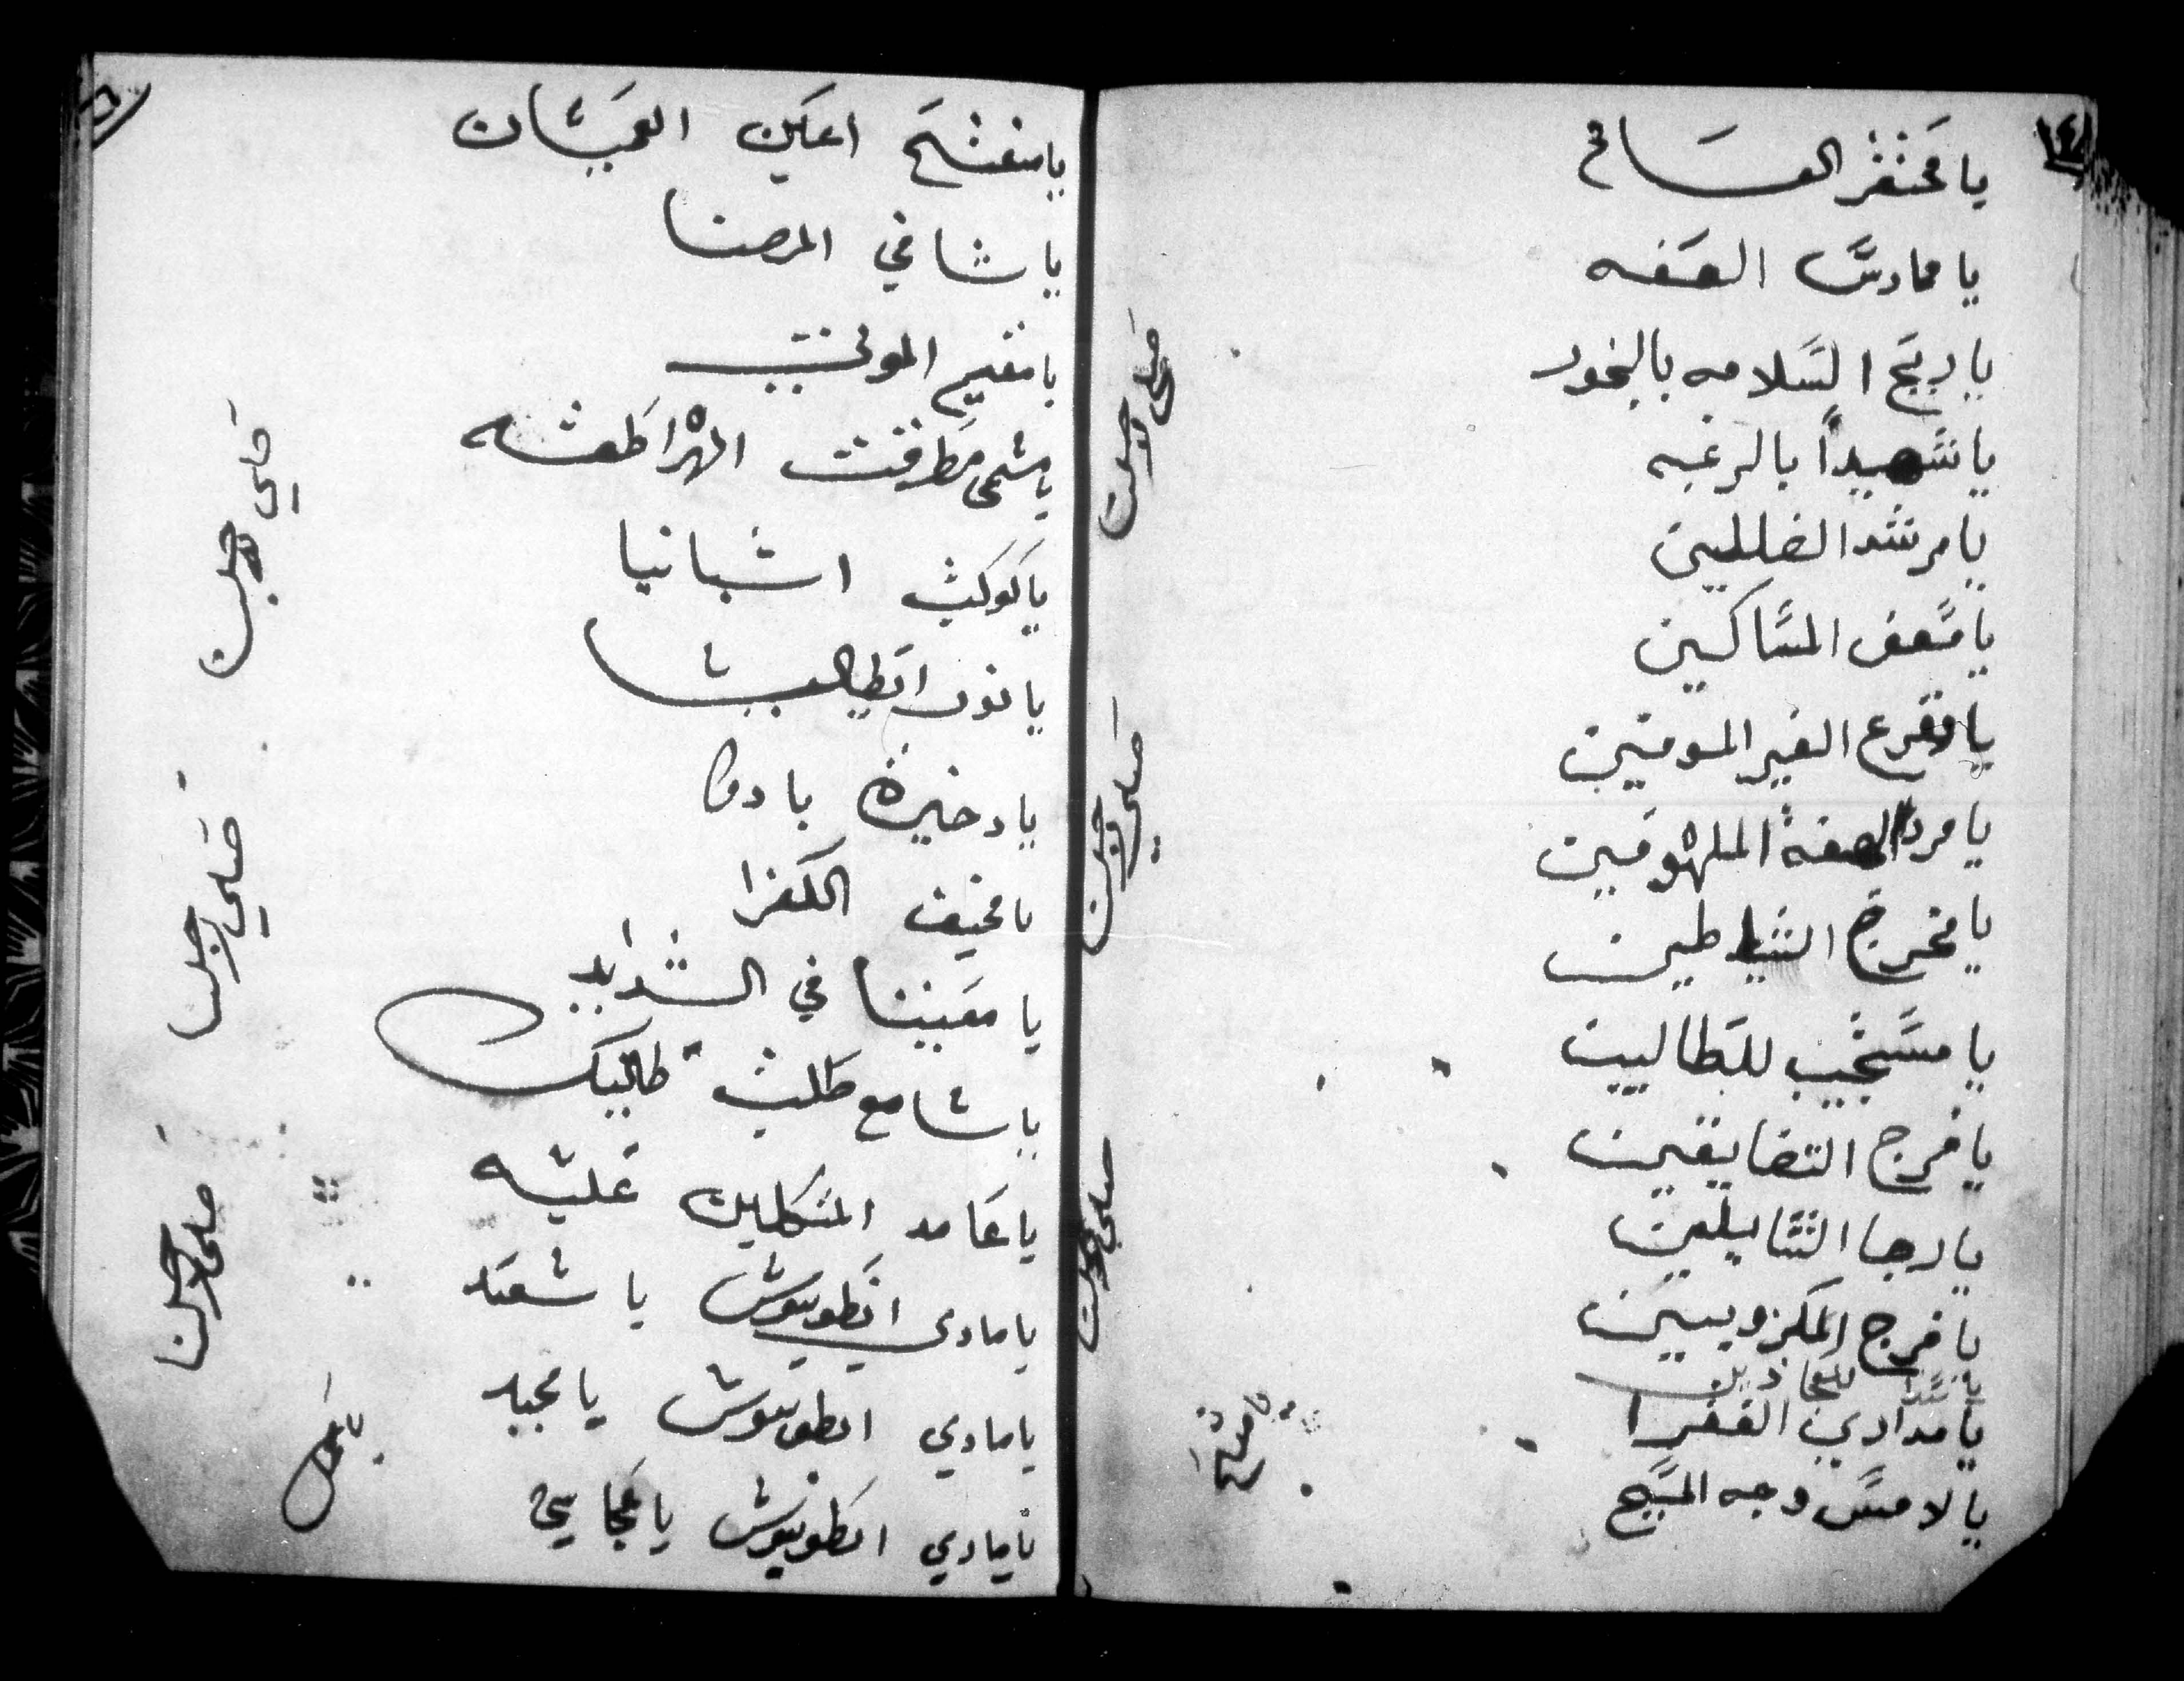 يا محتقر العسامح
يا حارس العفه
يا ربح السلامه بالبخور
يا شهيداً بالرغبه
يا مرشد الضللين
يا مسعف المساكين
يا مقرع الغير المومنين
يا مرد الملهوفين
يا مخرج الشياطين
يا مستجيب للطالبين
يا فرج التضايقين
يا رجا السايلين
يا فرج المكروبين
يا مداوي الفقرا
يا لامس وجه المسيح
صلي لاجلنا
صلي لاجلنا
صلي لاجلنا
يا مفتح اعين العميان
يا شافي المرضا
يا مقيم الموتى
يا مطرقت الهراطقه
يا كوكب اسبانيا
يا نور ايطاليا
يا دخيرة بادوا
يا مخيف الكفرا
يا معيننا في الشدايد
يا سامع طلبت طالبيك
يا عامد المتكلين عليه
يا ماري انطونيوس يا سعيد
يا ماري انطونيوس يا مجيد
يا ماري انطونيوس يا عجايبي
صلي لاجلنا
صلي لاجلنا
صلي لاجلنا